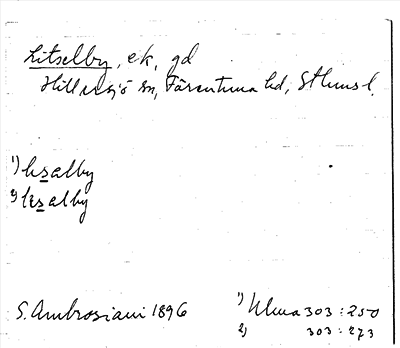 Litselby, ek, gd
Hillersjö sn, Färentuna hd, Sthms l.
1) lisalby
2) lisalby
S. Ambrosiani 1896
1) Ulma 303:250
2) 303:273